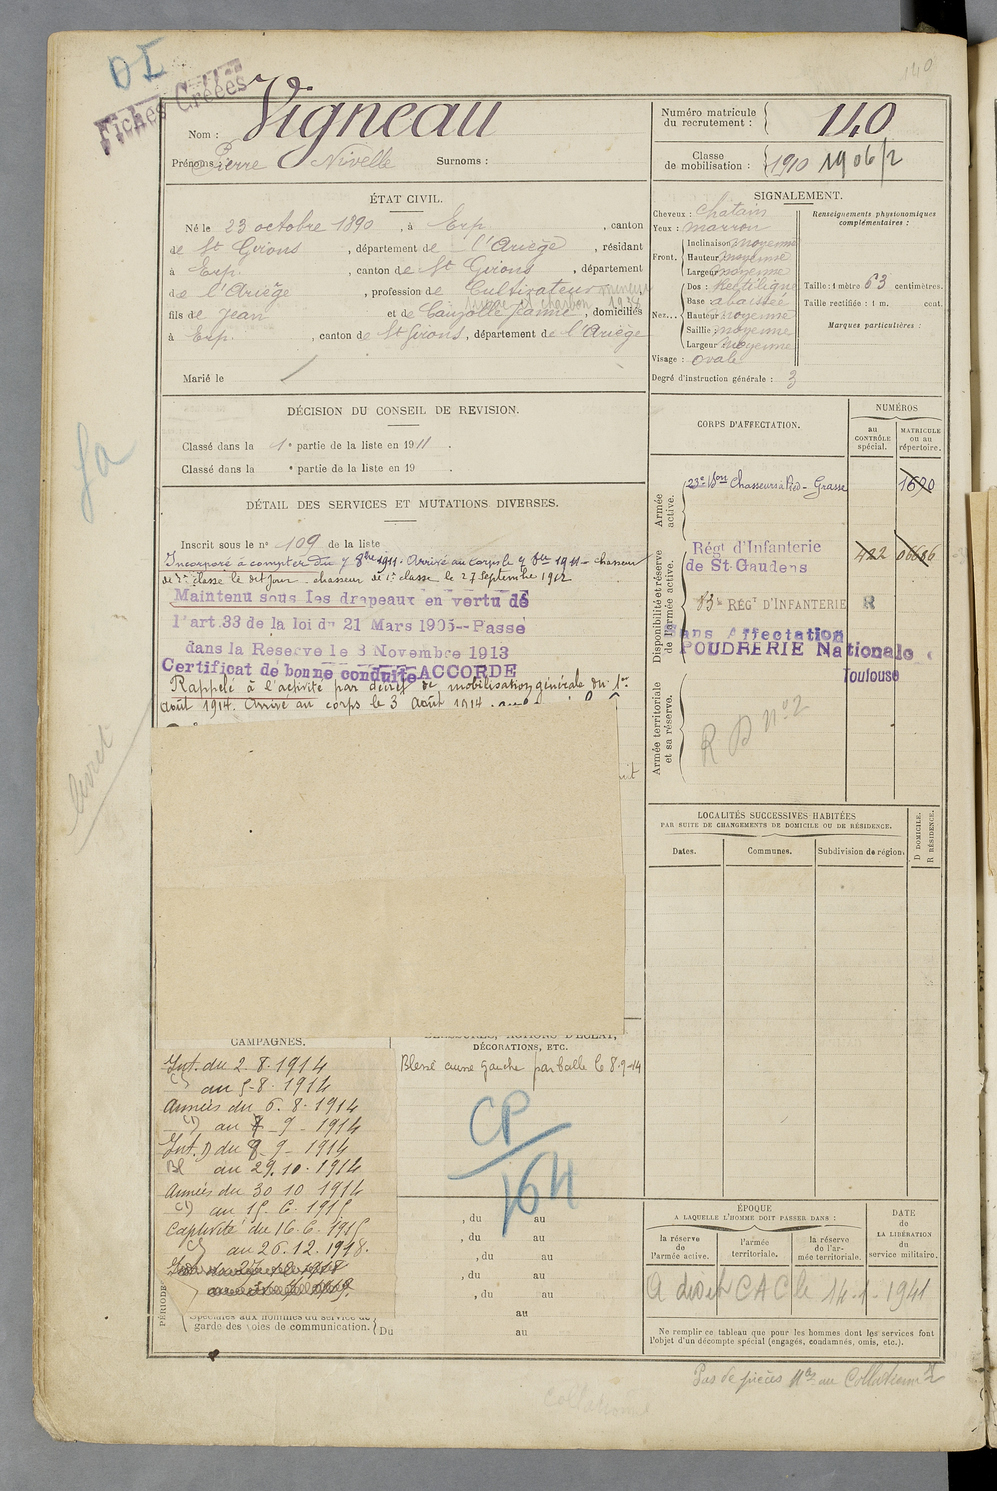 140
DI
Fiches Créées
Nom : Vigneau
Prénoms : Pierre Nivelle Surnoms :
Numéro matricule
du recrutement : 140
Classe
de mobilisation : 1910 1906/2
ÉTAT CIVIL.
Né le 23 octobre 1890, à Erp, canton
de St Girons, département de l'Ariège, résidant
à Erp, canton de St Girons, département
de l'Ariège, profession de Cultivateur
charbon 1938
fils de Jean et de Cauzolle Jeanne, domiciliés
à Erp, canton de St Girons, département de l'Ariège
Marié le /
SIGNALEMENT.
Cheveux : chatain
Yeux : marron
Front. Inclinaison moyenne
Hauteur moyenne
Largeur moyenne
Nez... Dos : Rectiligne
Base : abaissée
Hauteur moyenne
Saillie : moyenne
Largeur moyenne
Visage : ovale
Degré d'instruction générale : 3
Renseignements physionomiques
complémentaires :
Taille : 1 mètre 63 centimètres.
Taille rectifiée : 1 m. cent.
Marques particulières :
DÉCISION DU CONSEIL DE REVISION.
Classé dans la 1e partie de la liste en 1911.
Classé dans la e partie de la liste en 19 .
DÉTAIL DES SERVICES ET MUTATIONS DIVERSES.
Inscrit sous le n° 109 de la liste
Incorporé à compter du 7 8bre 1911. Arrivé au corps le 7 8bre 1911 - chasseur
de 2e classe le dit jour - chasseur de 1e classe le 27 septembre 1912
Maintenu sous les drapeaux en vertu de
l'art.33 de la loi du 21 Mars 1905--Passé
dans la Reserve le 8 Novembre 1913
Certificat de bonne conduite ACCORDE
Rappelé à l'activité par décret de mobilisation générale du 1er
Août 1914. Arrivé au corps le 3 Août 1914.
CORPS D'AFFECTATION.
NUMÉROS
au
CONTRÔLE
spécial.
MATRICULE
ou au
répertoire.
Armée
active.
23e Bon Chasseurs à Pied - Grasse 1620
Disponibilité et réserve
de l'armée active.
Régt d'Infanterie
de St-Gaudens 422 06686
RÉGT D'INFANTERIE R
Sans Affectation
POUDRERIE Nationale
Toulouse
Armée territoriale
et sa réserve.
R D n° 2
Sa
livret
LOCALITÉS SUCCESSIVES HABITÉES
PAR SUITE DE CHANGEMENTS DE DOMICILE OU DE RÉSIDENCE.
Dates.
Communes.
Subdivision de région.
D DOMICILE.
R RÉSIDENCE.
CAMPAGNES.
Int. du 2.8.1914
au 5-8-1914
Armées du 6.8.1914
au 7-9-1914
Int. du 8-9-1914
Bl au 29.10.1914
Armées du 30 10 1914
au 15.6.1915
Captivité du 16.6.1915
au 26.12.1918.
DÉCORATIONS, ETC.
Blessé cuisse gauche par balle le 8-9-14
CP
164
, du au
, du au
, du au
, du au
, du au
au
au
PÉRIODE
Spéciales aux hommes du service de
garde des voies de communication. Du
ÉPOQUE
A LAQUELLE L'HOMME DOIT PASSER DANS :
la réserve
de
l'armée active.
l'armée
territoriale.
la réserve
de l'ar-
mée territoriale.
DATE
de
LA LIBÉRATION
du
service militaire.
A droit CAC le 14-1-1941
Ne remplir ce tableau que pour les hommes dont les services font
l'objet d'un décompte spécial (engagés, condamnés, omis, etc.).
Pas de pièces